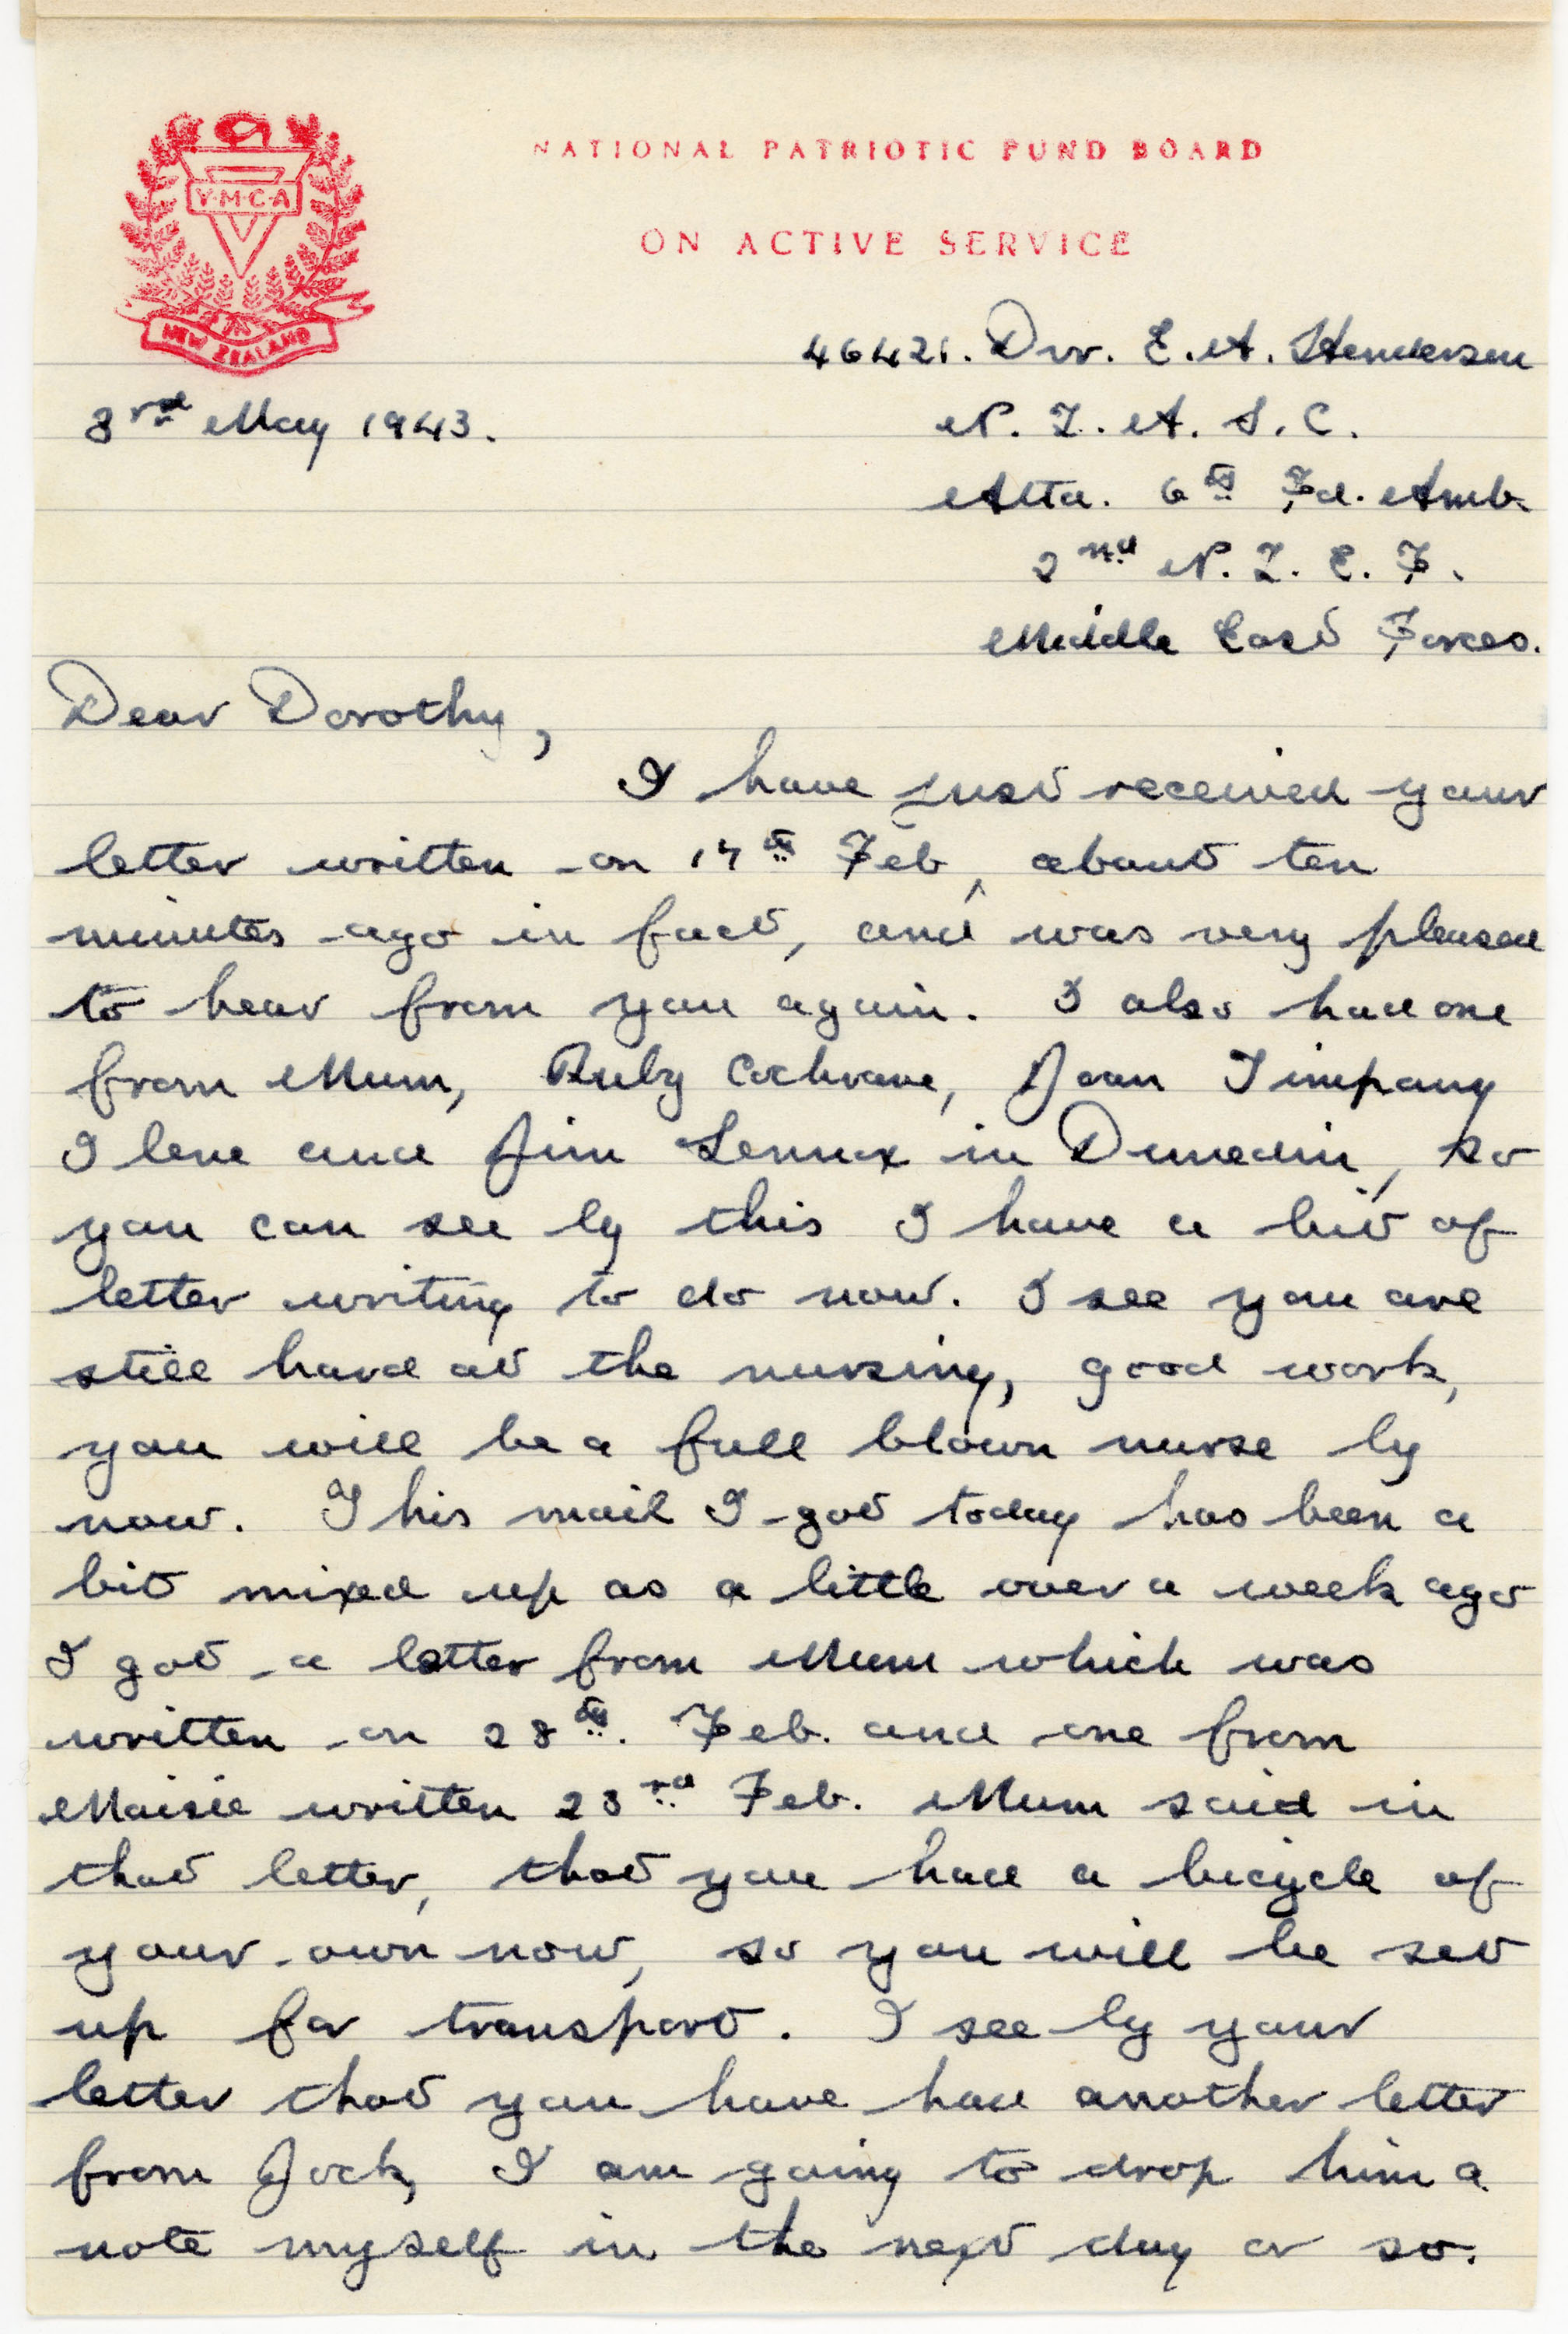 Y·M·C·A
NEW ZEALAND
NATIONAL PATRIOTIC FUND BOARD
ON ACTIVE SERVICE
46421. Dvr. E. A. Henderson
3rd May 1943.
N. Z. A. S. C.
Attd. 6th Fd. Amb.
2nd N. Z. E. F.
Middle East Forces.
Dear Dorothy,
I have just received your
letter written on 17th Feb, about ten
minutes ago in fact, and was very pleased
to hear from you again. I also had one
from Mum, Ruby Cochrane, Joan Timpany
Ilene and Jim Lennox in Dunedin, so
you can see by this I have a bit of
letter writing to do now. I see you are
still hard at the nursing, good work,
you will be a full blown nurse by
now. This mail I got today has been a
bit mixed up as a little over a week ago
I got a letter from Mum which was
written on 28th. Feb. and one from
Maisie written 23rd Feb. Mum said in
that letter, that you had a bicycle of
your own now, so you will be set
up for transport. I see by your
letter that you have had another letter
from Jock, I am going to drop him a
note myself in the next day or so.